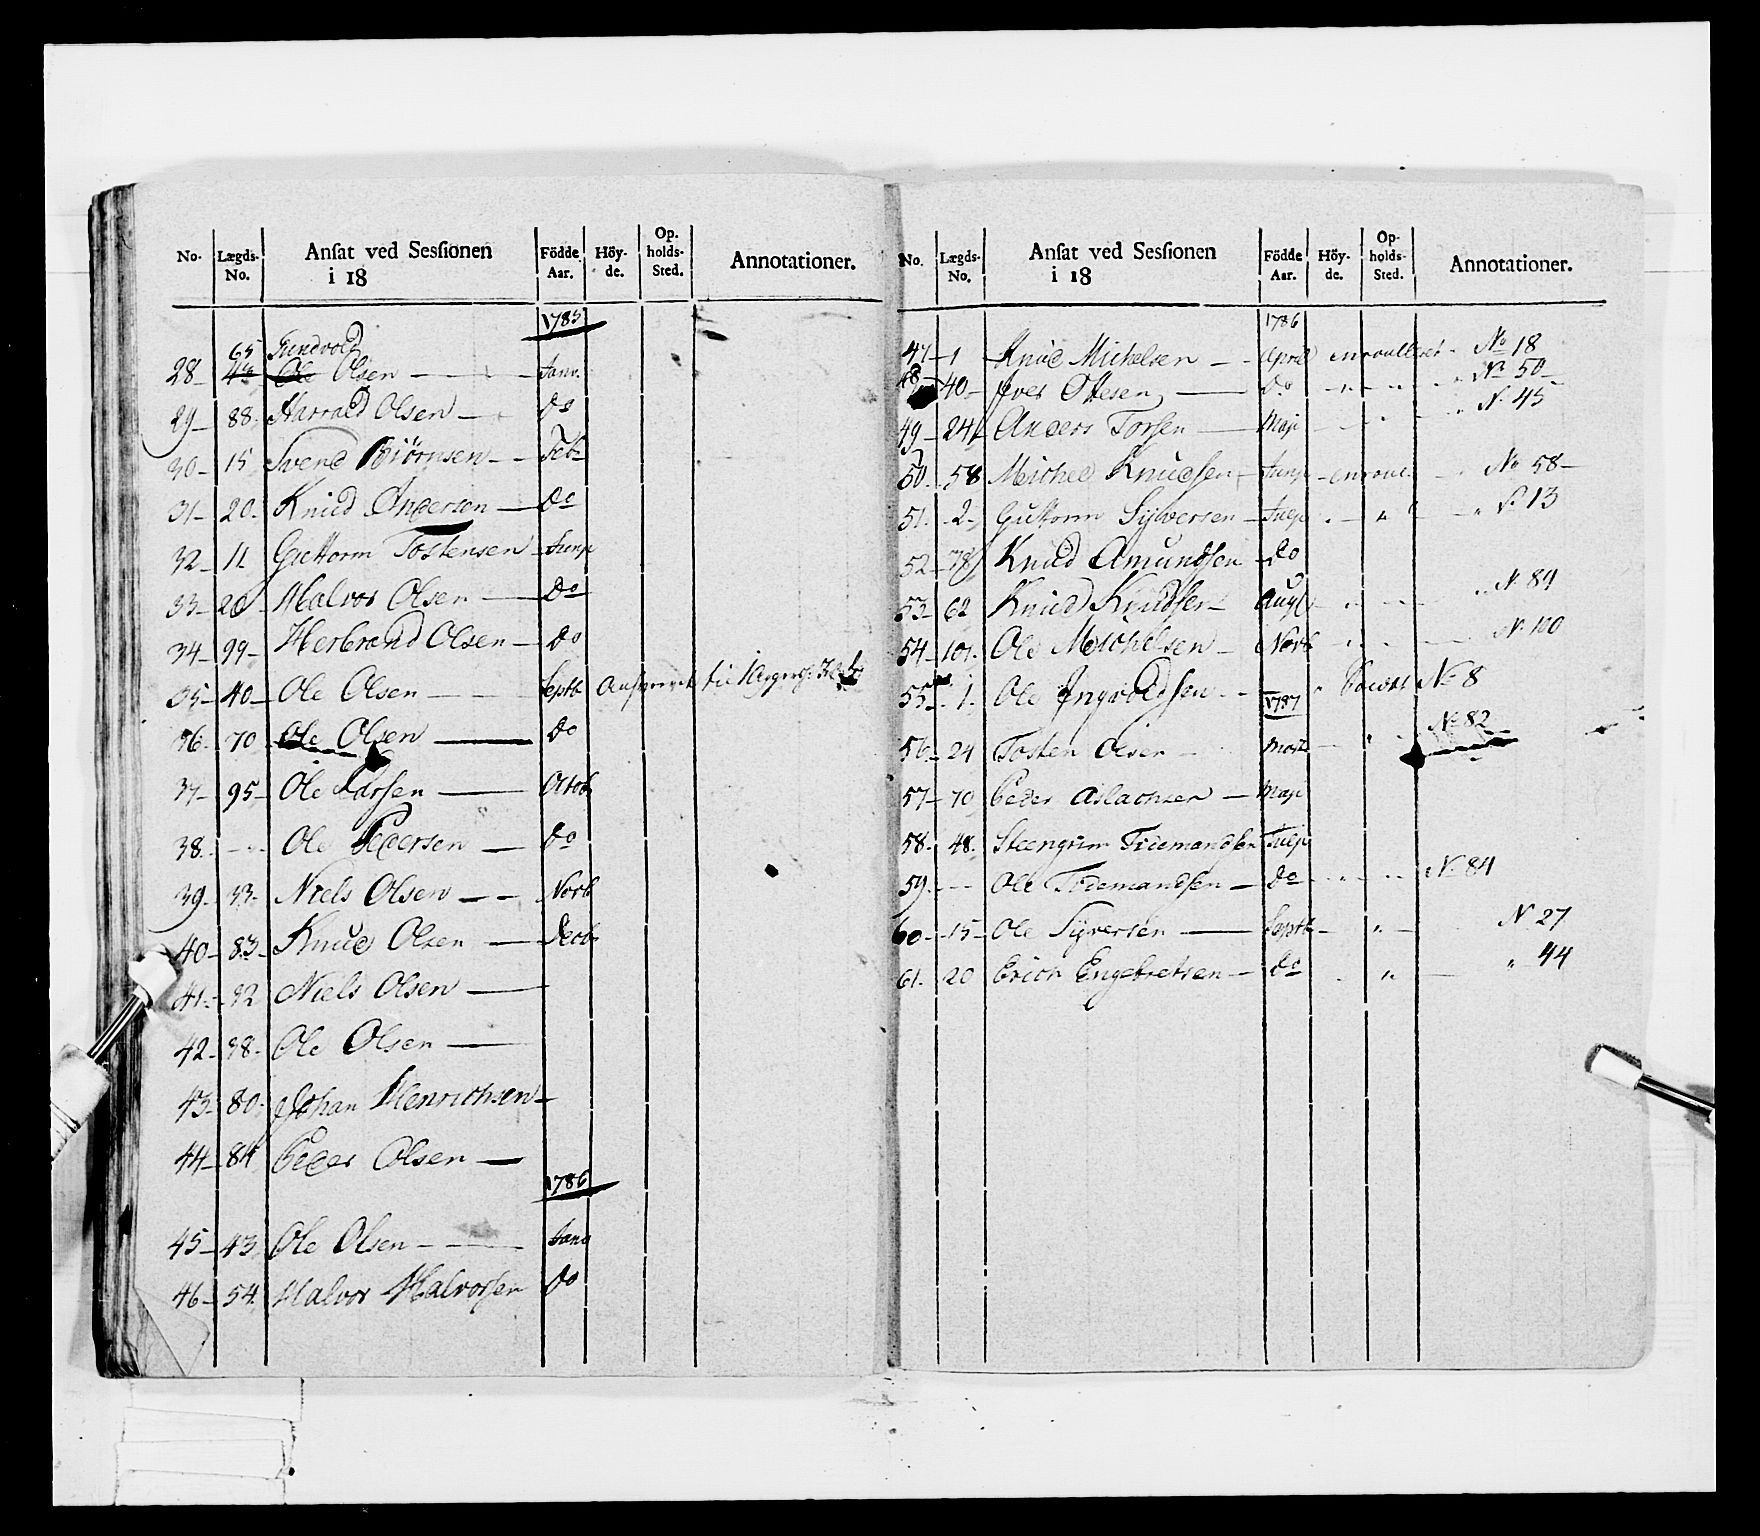 No. Lægds-No. Ansat ved Sessionen i 18 Födde Aar. Höyde. Opholds-Sted. Annotationer.
1785
65 Gundvold
28 - Ole Olsen - Janv.
29 - 88 - Harrald Olsen - do
30 - 15 Svend Biörnsen - Feb
31 - 20 - Knud Andersen - do
32 - 11 Guttorm Tostensen - Juny
33 - 20 Halvor Olsen - do
34 - 99 - Herbrand Olsen - do
35 - 40 - Ole Olsen - Septb til
36 - 70 - Ole Olsen - do
37 - 95 - Ole Larsen - Octob
38 - - Ole Pedersen - do
39 - 33 - Niels Olsen - Novb
40 - 83 - Knud Olsen - Decb
41 - 92 Niels Olsen -
42 - 98 - Ole Olsen -
43 - 80 - Johan Henrichsen -
44 - 84 Peder Olsen -
1786
45 - 43 Ole Olsen - Janv
46 - 54 Halvor Halvorsen do
No. Lægds-No. Ansat ved Sessionen i 18 Födde Aar. Höyde. Opholds-Sted. Annotationer.
1786
47 - 1 Knud Michelsen - April enroulleret - No 18
48 - 40 - Iver Ottesen - do - " - " - No 50
49 - 24 Anders Torsen - Maji - " - " N. 45
50 - 58 Michel Knudsen - Juny - enroul - No 58 -
51 - 2 - Guttorm Sylversen - July - " - " N 13
52 - 78 Knud Amundsen - do
53 - 62 Knud Knudsen - Aug - " N. 89
54 - 101 - Ole Michelsen - Novb - " N. 100
55 - 1 - Ole Ingvoldsen - " No 8
1787
56 - 24 Tosten Olsen - " No 82
57 - 70 Peder Aslachsen - Maji
58 - 48 - Steengrim Tidemandsen July
59 - - Ole Tidemandsen - do - " - N. 84
60 - 15 - Ole Syversen - Septb - " - N 27
61 - 20 Erich Engebretsen - do - " - " 44